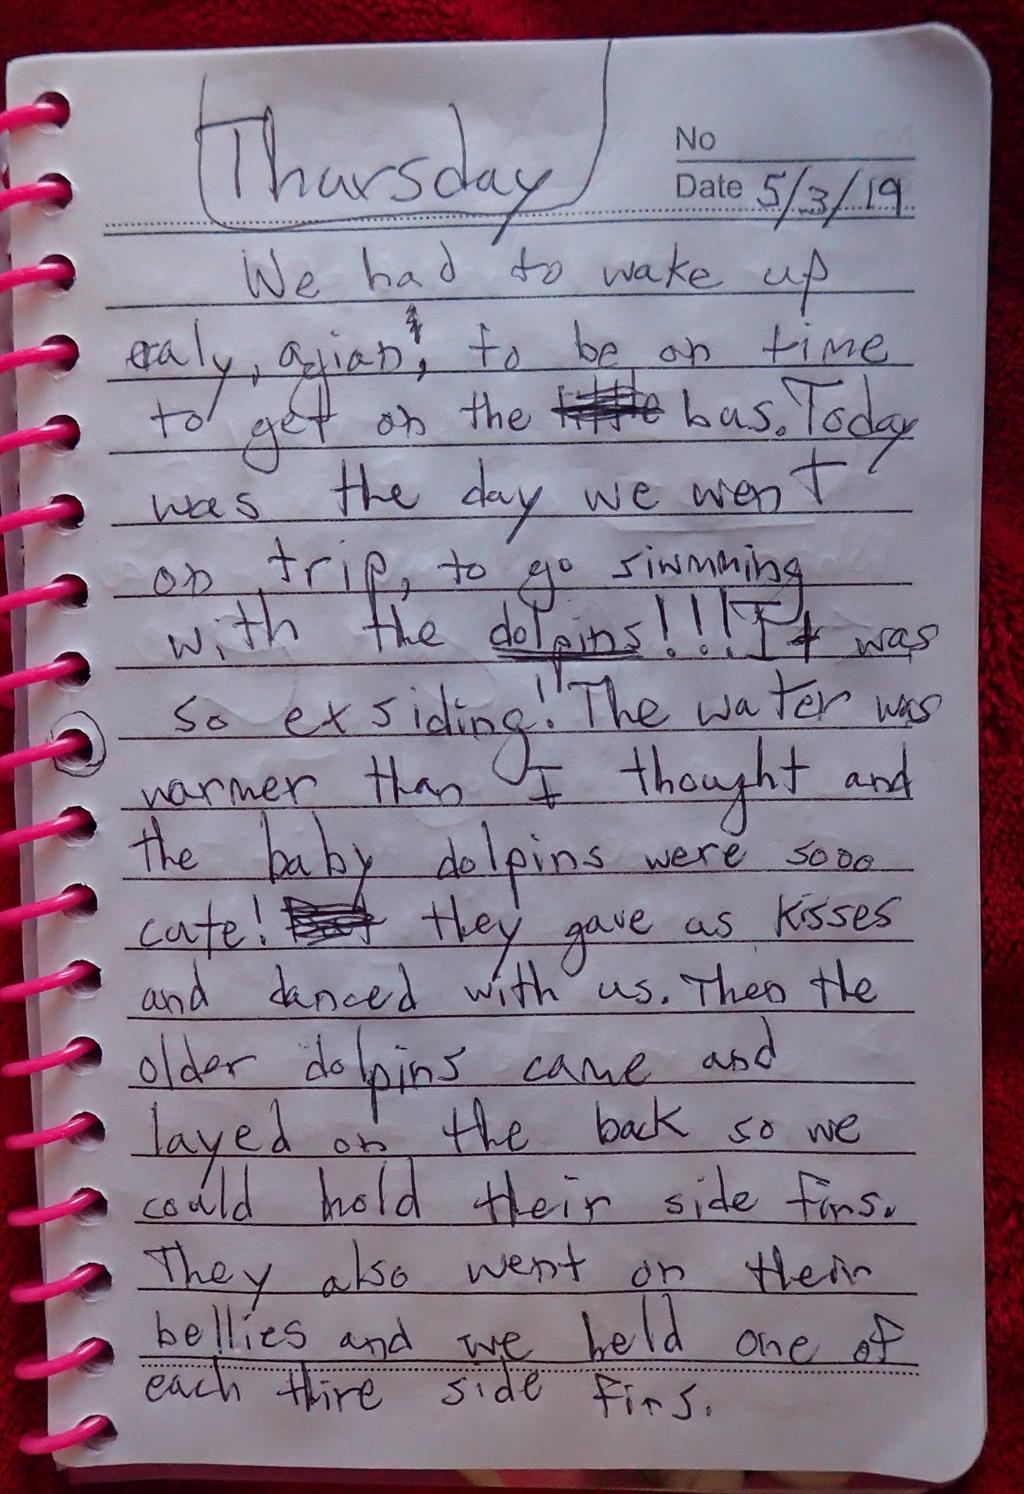 Thursday
No
Date 5/3/19
We had to wake up
eraly, agian, to be on time
to get on the bus. Today
was the day we went
on trip, to go siwmming
with the dolpins!!! It was
so exsiding! The water was
warmer than I thought and
the baby dolpins were sooo
cute! they gave us kisses
and danced with us. Then the
older dolpins came and
layed on the back so we
could hold their side fins.
They also went on their
bellies and we held one of
each thire side fins.